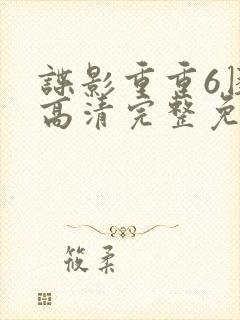 諜影重重6
高清完整免
筱柔